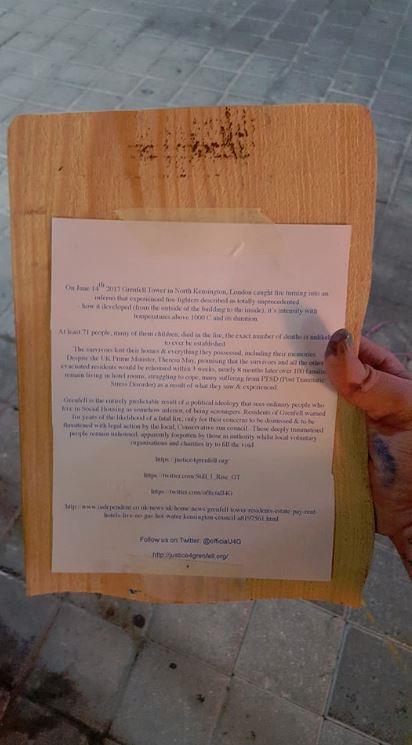 On June 14th 2017 Grenfell Tower in North Kensington, London caught fire turning into an
inferno that experienced fire fighters described as totally unprecedented
- how it developed (from the outside of the building to the inside), it's intensity with
temperatures above 1000 C and its duration.
At least 71 people, many of them children, died in the fire, the exact number of deaths is unlikely
to ever be established.
The survivors lost their homes & everything they possessed, including their memories.
Despite the UK Prime Minister, Theresa May, promising that the survivors and all the other
evacuated residents would be rehoused within 3 weeks, nearly 8 months later over 100 families
remain living in hotel rooms, struggling to cope, many suffering from PTSD (Post Traumatic
Stress Disorder) as a result of what they saw & experienced.
Grenfell is the entirely predictable result of a political ideology that sees ordinary people who
live in Social Housing as somehow inferior, of being scroungers. Residents of Grenfell warned
for years of the likelihood of a fatal fire, only for their concerns to be dismissed & to be
threatened with legal action by the local, Conservative run council. These deeply traumatised
people remain unhoused, apparently forgotten by those in authority whilst local voluntary
organisations and charities try to fill the void.
https://justice4grenfell.org/
https://twitter.com/Still_I_Rise_GT
https://twitter.com/officialJ4G
http://www.independent.co.uk/news/uk/home-news/grenfell-tower-residents-estate-pay-rent-
hotels-live-no-gas-hot-water-kensington-council-a8197561.html
Follow us on Twitter: @officialJ4G
http://justice4grenfell.org/